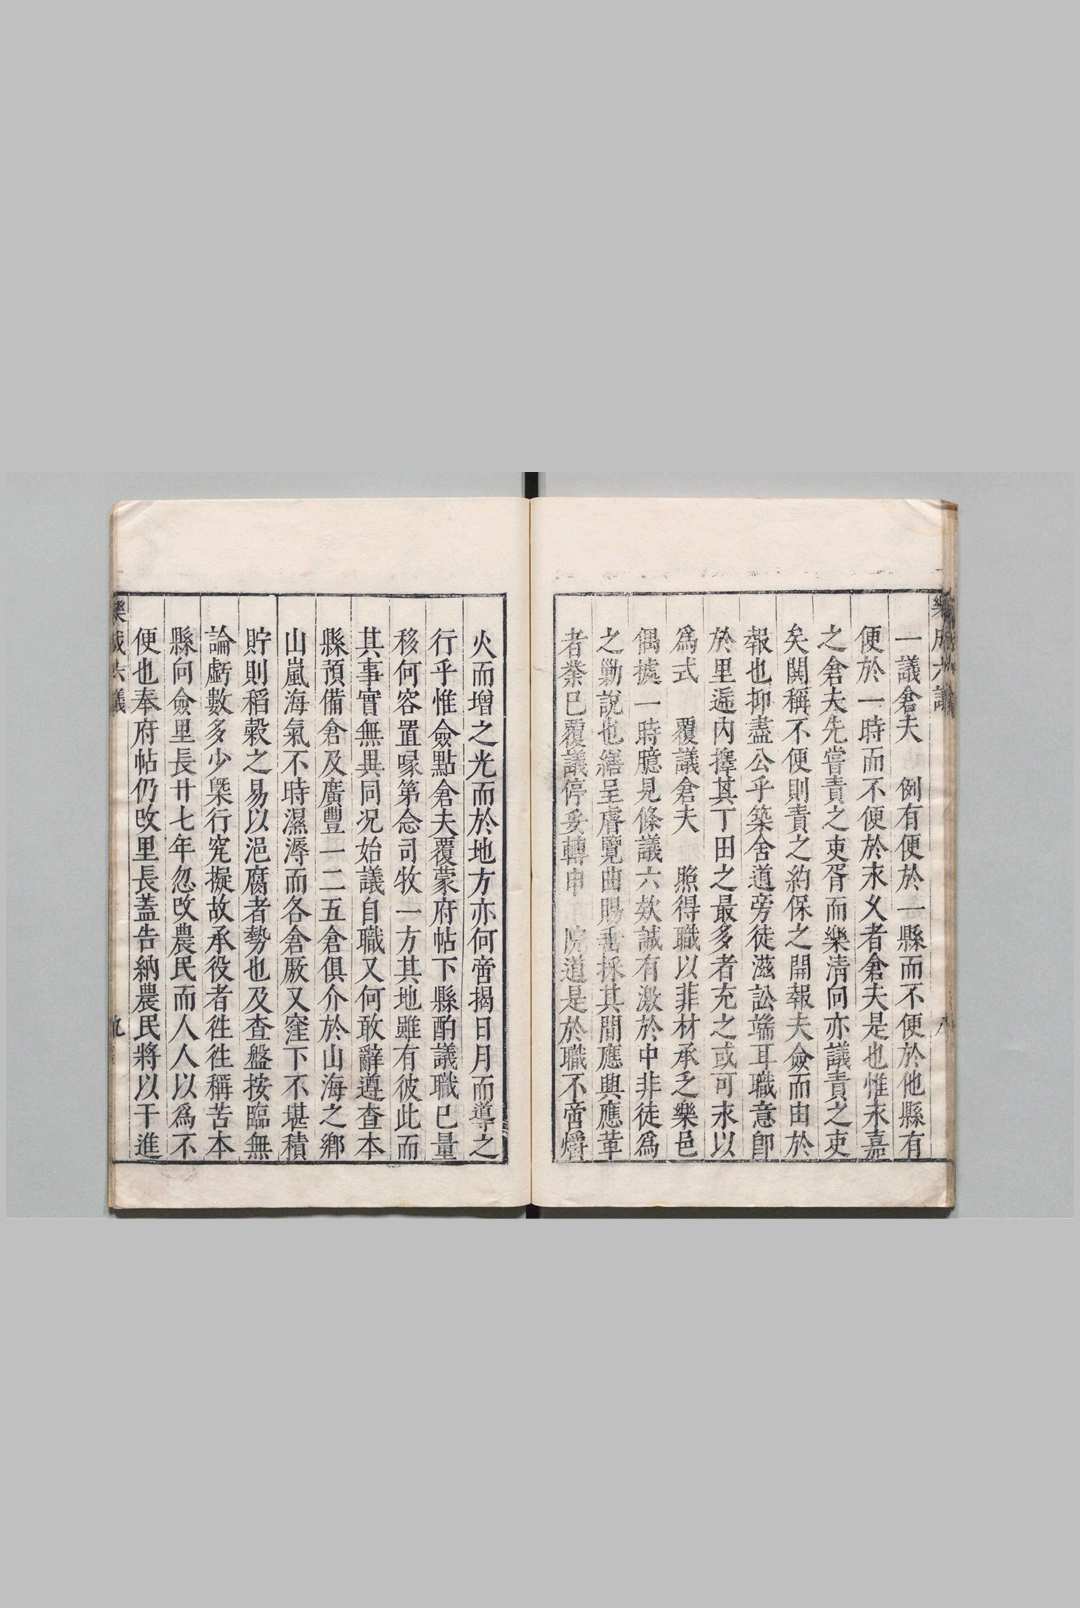 樂成六議
八
一議倉夫　例有便於一縣而不便於他縣有
便於一時而不便於永乂者倉夫是也惟永嘉
之倉夫先嘗責之吏胥而樂清向亦議責之吏
矣関稱不便則責之約保之開報夫僉而由於
報也抑盡公乎築舍道旁徒滋訟端耳職意卽
於里逓内擇其丁田之最多者充之或可永以
爲式　覆議倉夫　照得職以菲材承乏樂邑
偶攄一時臆見條議六欵誠有激於中非徒爲
之勦說也繕呈膚覽曲賜垂採其間應與應革
者業已覆議停妥轉申　院道是於職不啻爝
火而增之光而於地方亦何啻揭日月而導之
行乎惟僉點倉夫覆蒙府帖下縣酌議職已量
移何容置喙第念司牧一方其地雖有彼此而
其事實無異同况始議自職又何敢辭遵查本
縣預備倉及廣豐一二五倉俱介於山海之鄉
山嵐海氣不時濕溽而各倉厫又窪下不堪積
貯則稻穀之易以浥腐者勢也及查盤按臨無
論虧數多少槩行究擬故承役者徃徃稱苦本
縣向僉里長廿七年忽改農民而人人以爲不
便也奉府帖仍改里長蓋告納農民將以干進
樂成六議
九